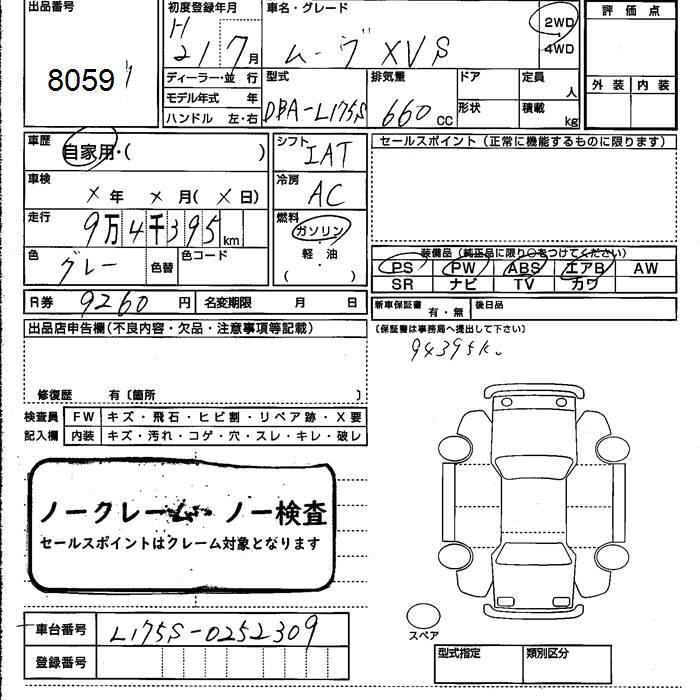 出品番号 初度登録年月 車名・グレード 評価点
8059 H 21 7月 ムーヴ XVS 2WD 4WD
ディーラー・並行 型式 排気量 ドア 定員 人 外装 内装
モデル年式 年 DBA-L175S 660cc 形状 積載 kg
ハンドル 左・右
車歴 自家用・( ) シフト IAT セールスポイント（正常に機能するものに限ります）
車検 ×年 ×月(×日) 冷房 AC
走行 9万4千395km 燃料 ガソリン
色 グレー 色替 色コード 軽油 ( ) 装備品（純正品に限り○をつけてください）
PS PW ABS エアB AW
SR ナビ TV カワ
R券 9260円 名変期限 月 日 新車保証書 有・無 後日品
出品店申告欄(不良内容・欠品・注意事項等記載) （保証書は事務局へ提出して下さい）
94395k.
修復歴 有〔箇所 〕
検査員 FW キズ・飛石・ヒビ割・リペア跡・X要
記入欄 内装 キズ・汚れ・コゲ・穴・スレ・キレ・破レ
ノークレーム ノー検査
セールスポイントはクレーム対象となります
車台番号 L175S-0252309 スペア
登録番号 型式指定 類別区分